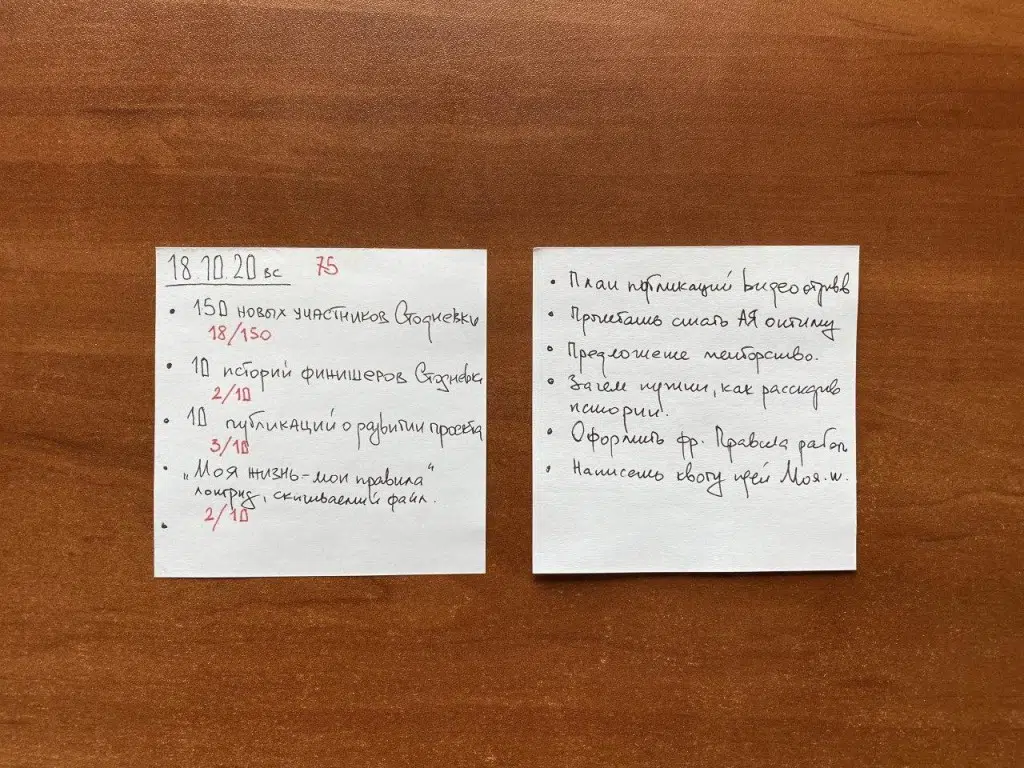 18.10.20 вс 75
• 150 новых участников Стодневки
18/150
• 10 историй финишеров Стодневки
2/10
• 10 публикаций о развитии проекта
3/10
• „Моя жизнь – мои правила“
лонгрид, скачиваемый файл.
2/10
•
• План публикаций видеоотзывов
• Прочитать АЯ
• Предложение менторство.
• Зачем нужны, как рассказыв
истории.
• Оформить фр. Правила работ
• Написать квоту идей Моя.ж.